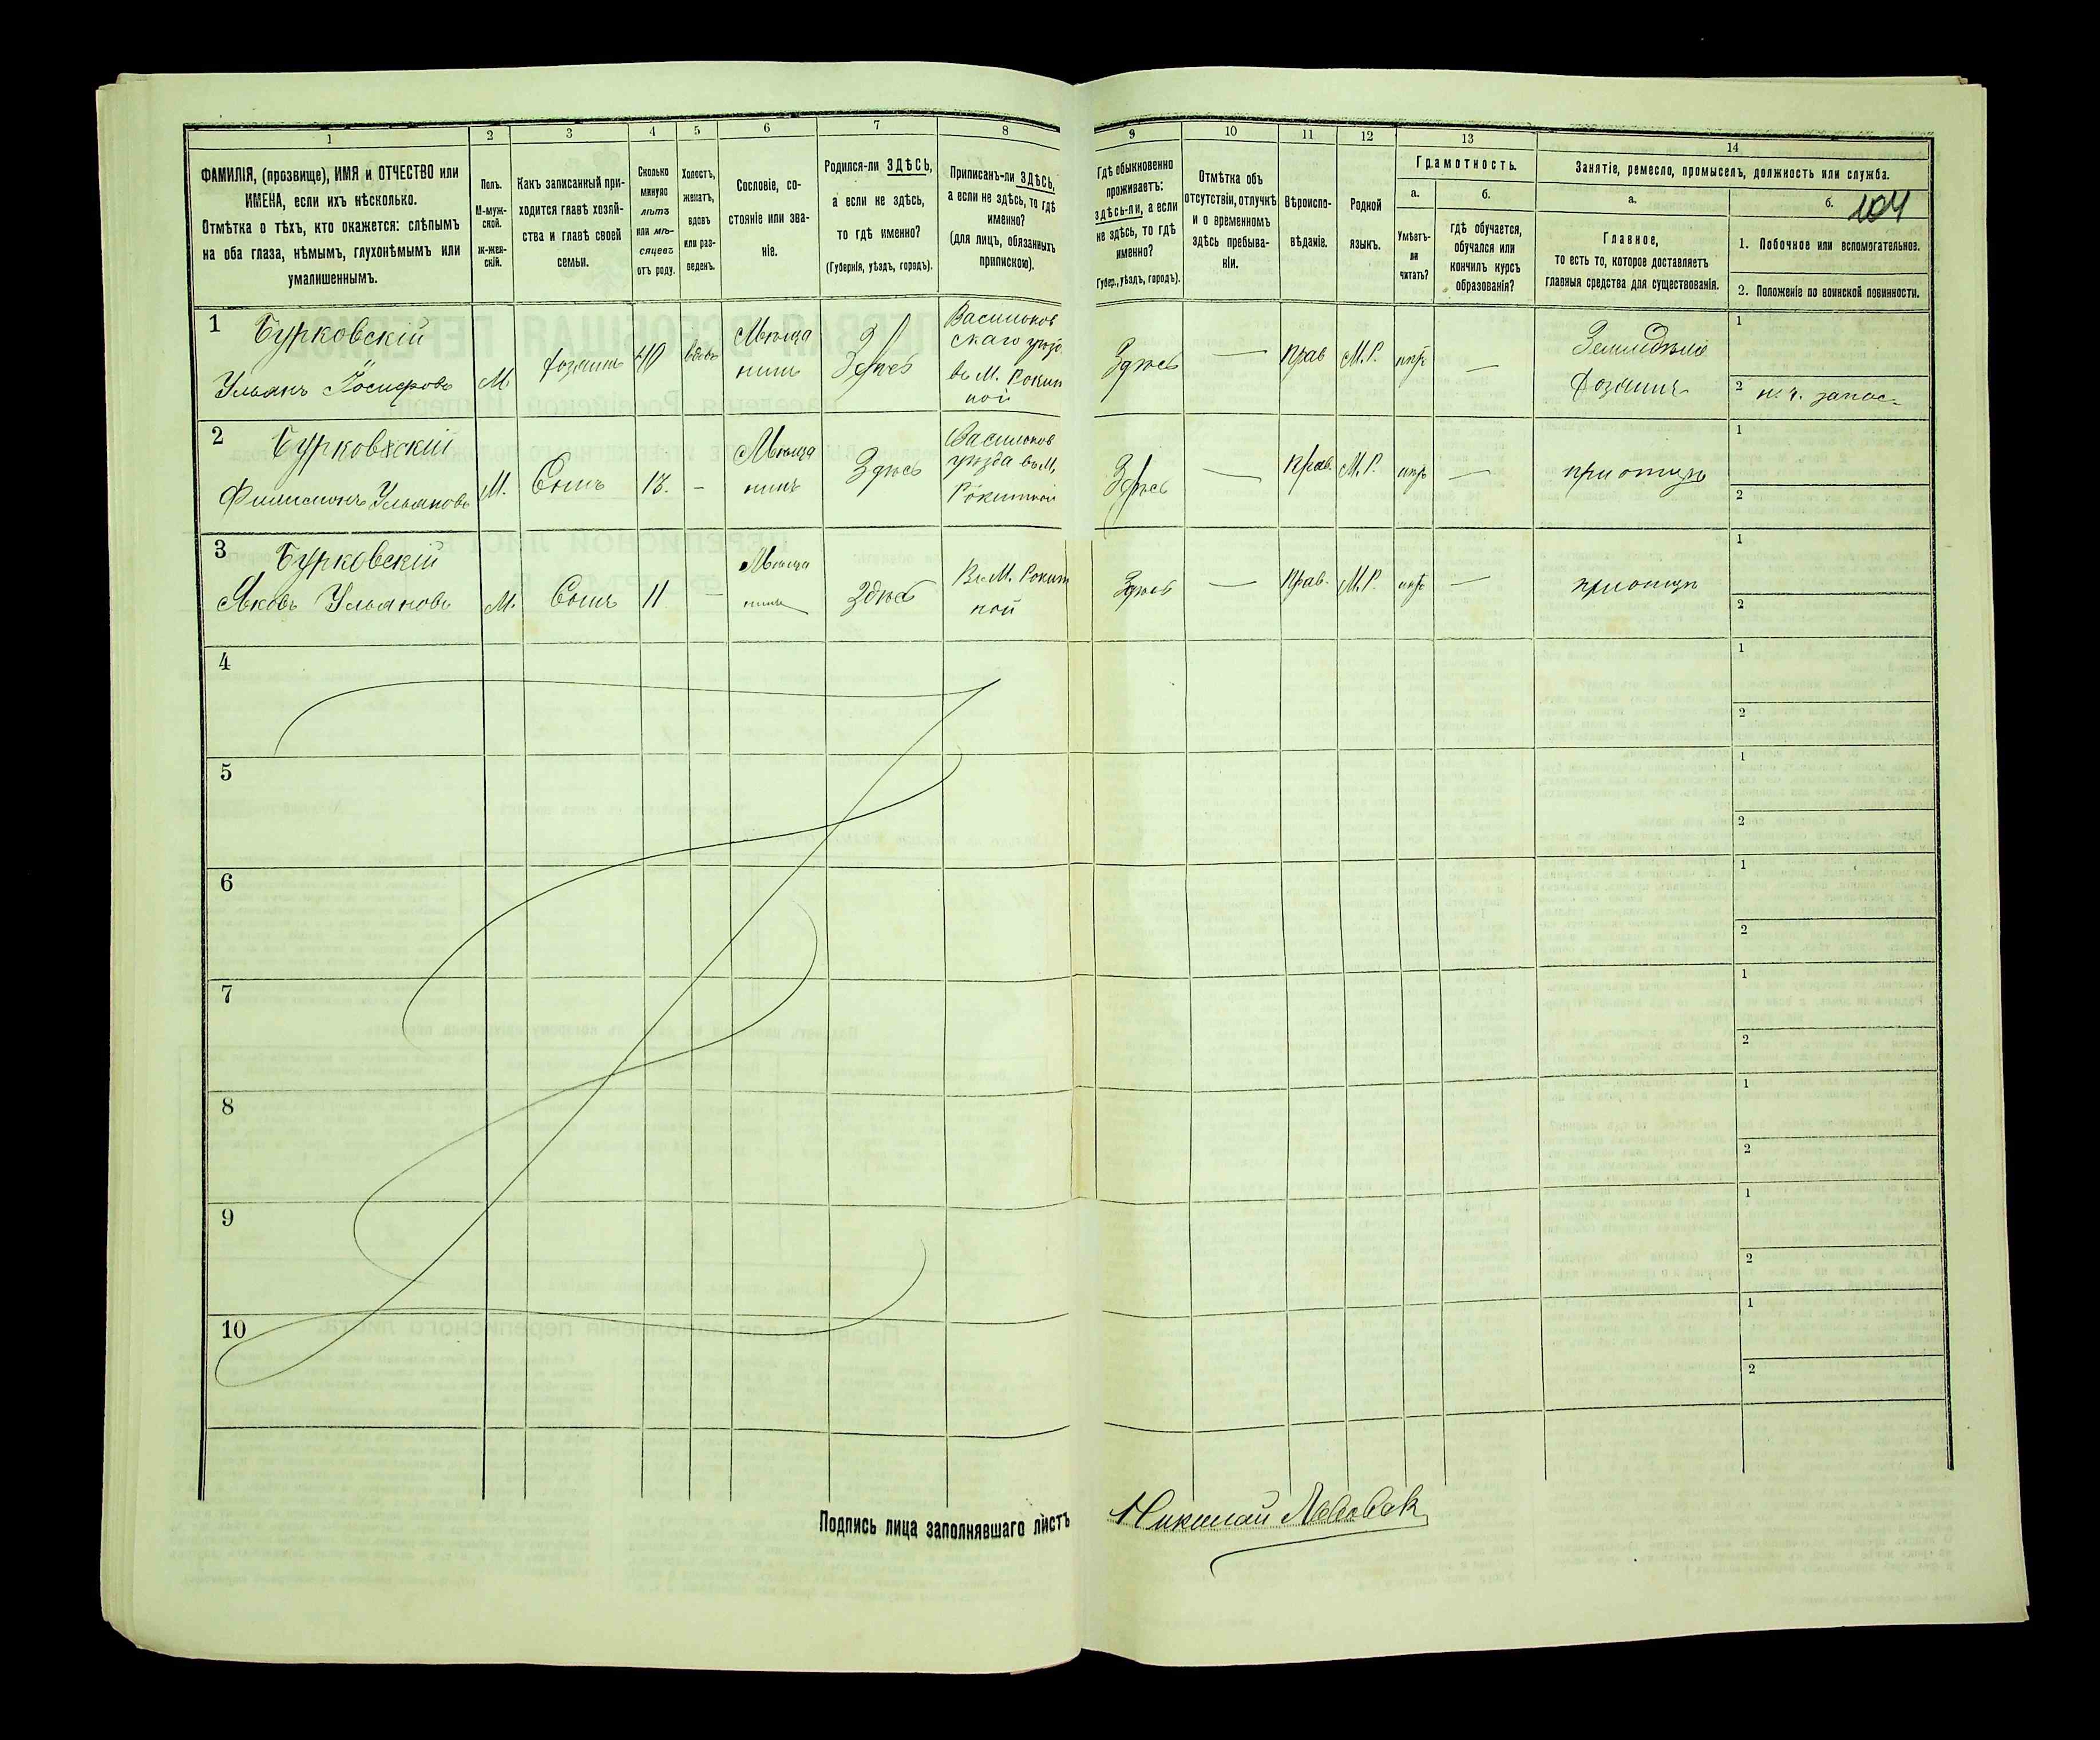 1
2
3
4
5
6
7
8
ФАМИЛІЯ, (прозвище), ИМЯ и ОТЧЕСТВО или
ИМЕНА, если ихъ нѣсколько.
Отмѣтка о тѣхъ, кто окажется: слѣпымъ
на оба глаза, нѣмымъ, глухонѣмымъ или
умалишеннымъ.
Полъ.
М-муж-
ской.
Ж-жен-
скій.
Какъ записанный при-
ходится главѣ хозяй-
ства и главѣ своей
семьи.
Сколько
минуло
лѣтъ
или мѣ-
сяцевъ
отъ роду.
Холостъ,
женатъ,
вдовъ
или раз-
веденъ.
Сословіе, со-
стояніе или зва-
ніе.
Родился-ли ЗДѢСЬ,
а если не здѣсь,
то гдѣ именно?
(Губернія, уѣздъ, городъ).
Приписанъ-ли ЗДѢСЬ,
а если не здѣсь, то гдѣ
именно?
(для лицъ, обязанныхъ
припискою).
1
Бурковскій
Ульянъ
М.
Хозяинъ
40
вдовъ
Мѣща
нинъ
Здѣсь
Васильков
скаго уѣзд.
въ М. Рокит
ной
2
Бурковскій
Филимонъ Ульяновъ
М.
Сынъ
13.
-
Мѣща
нинъ
Здѣсь
Васильков
уѣзда въ М.
Рокитной
3
Бурковскій
Яковъ Ульяновъ
М.
Сынъ
11
-
Мѣща
нинъ
Здѣсь
Въ М. Рокит
ной
4
5
6
7
8
9
10
Подпись лица заполнявшаго листъ
9
10
11
12
13
14
104
Гдѣ обыкновенно
проживаетъ:
здѣсь-ли, а если
не здѣсь, то гдѣ
именно?
(Губер., уѣздъ, городъ).
Отмѣтка объ
отсутствіи, отлучкѣ
и о временномъ
здѣсь пребыва-
ніи.
Вѣроиспо-
вѣданіе.
Родной
языкъ.
Грамотность.
а.
б.
Умѣетъ-
ли
читать?
гдѣ обучается,
обучался или
кончилъ курсъ
образованія?
Занятіе, ремесло, промыселъ, должность или служба.
а.
б.
Главное,
то есть то, которое доставляетъ
главныя средства для существованія.
1. Побочное или вспомогательное.
2. Положеніе по воинской повинности.
Здѣсь
—
Прав
М.Р.
—
Земледѣліе
Хозяинъ
1
2
запас
Здѣсь
—
Прав.
М.Р.
—
при отцѣ
1
2
Здѣсь
—
Прав.
М.Р.
—
при отцѣ
1
2
1
2
1
2
1
2
1
2
1
2
1
2
1
2
Николай